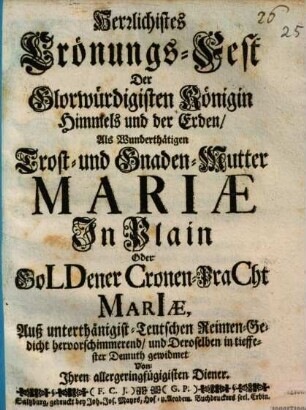 26
25
Herrlichistes
Crönungs-Fest
Der
Glorwürdigisten Königin
Himmels und der Erden/
Als Wunderthätigen
Trost- und Gnaden-Mutter
MARIÆ
In Plain
Oder
GoLDener Cronen-PraCht
MARIÆ,
Auß unterthänigist-Teutschen Reimen-Ge-
dicht hervorschimmerend/ und Deroselben in tieffe-
ster Demuth gewidmet
Von
Ihren allergeringfügigisten Diener.
( F. C. J. ) ( G. P. )
Saltzburg, gedruckt bey Joh. Jos. Mayrs, Hof- u. Academ. Buchdruckers seel. Erbin.